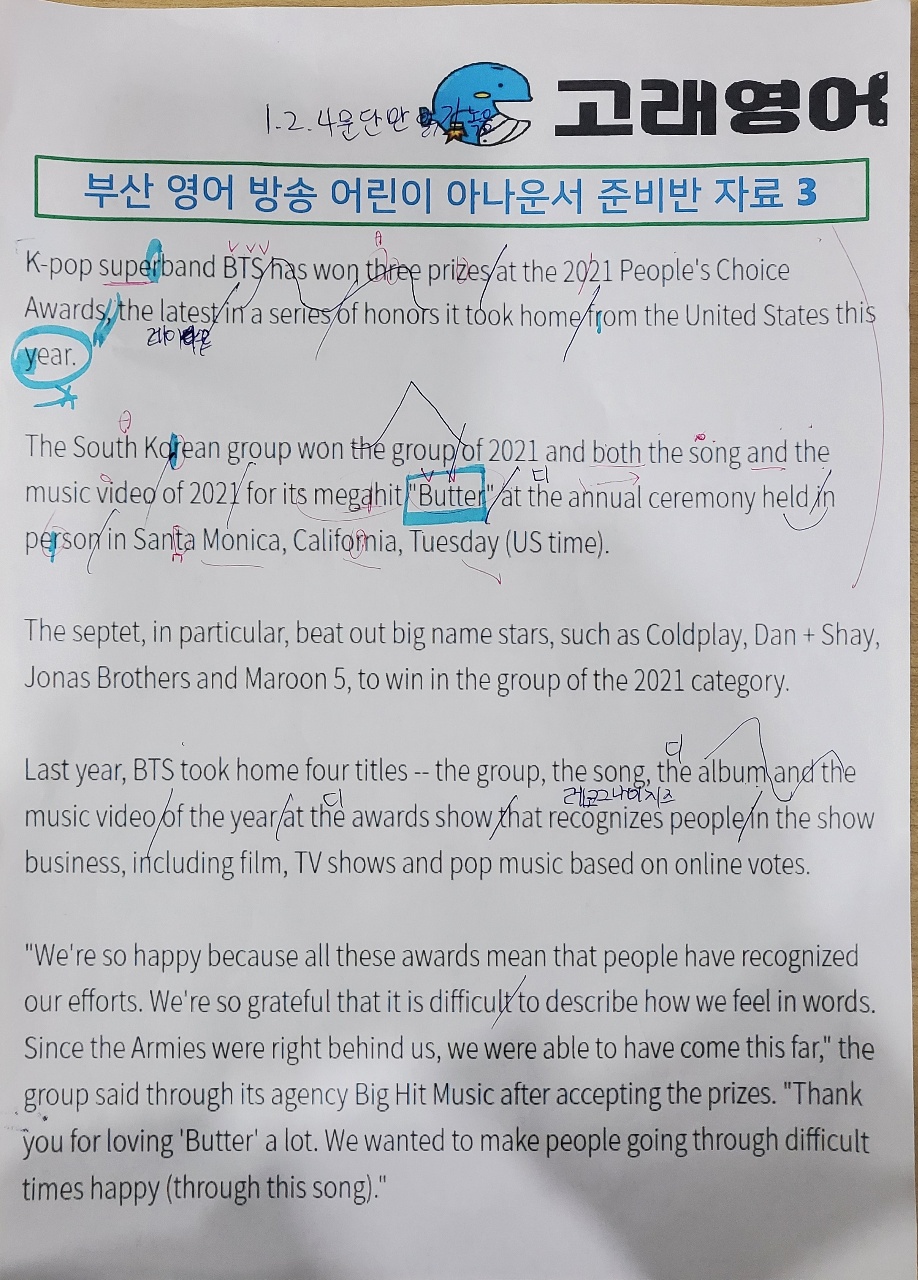 1.2.4문단만
고래영어
부산 영어 방송 어린이 아나운서 준비반 자료 3
K-pop superband BTS has won three prizes at the 2021 People's Choice
Awards, the latest in a series of honors it took home from the United States this
year.
The South Korean group won the group of 2021 and both the song and the
music video of 2021 for its megahit "Butter" at the annual ceremony held in
디
person in Santa Monica, California, Tuesday (US time).
The septet, in particular, beat out big name stars, such as Coldplay, Dan + Shay,
Jonas Brothers and Maroon 5, to win in the group of the 2021 category.
디
Last year, BTS took home four titles -- the group, the song, the album and the
디
레코그나이지즈
music video of the year at the awards show that recognizes people in the show
business, including film, TV shows and pop music based on online votes.
"We're so happy because all these awards mean that people have recognized
our efforts. We're so grateful that it is difficult to describe how we feel in words.
Since the Armies were right behind us, we were able to have come this far," the
group said through its agency Big Hit Music after accepting the prizes. "Thank
you for loving 'Butter' a lot. We wanted to make people going through difficult
times happy (through this song)."